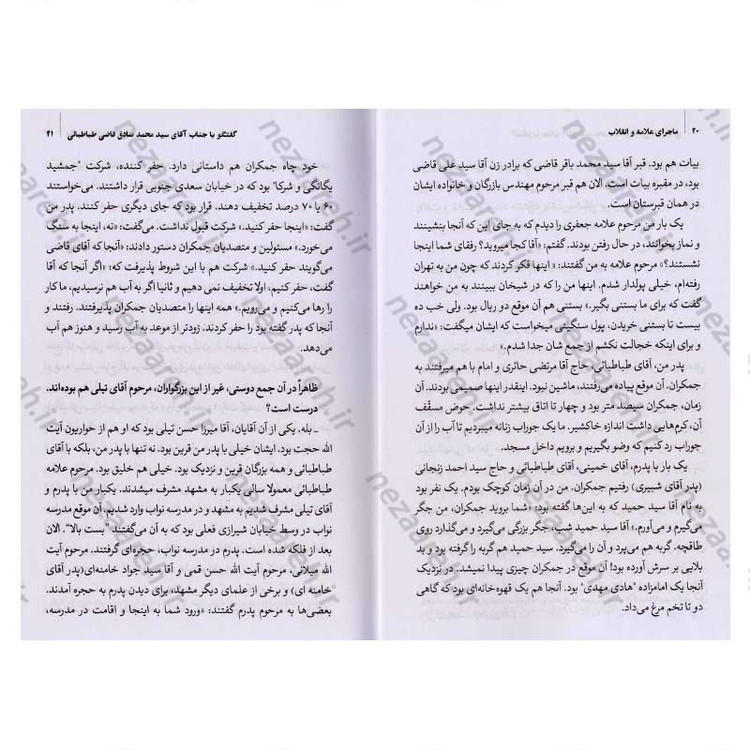 ۲۰ ماجرای علامه و انقلاب
بیات هم بود. قبر آقا سید محمد باقر قاضی که برادر زن آقا سید علی قاضی
بود، در مقبره بیات است. الان هم قبر مرحوم مهندس بازرگان و خانواده ایشان
در همان قبرستان است.
یک بار من مرحوم علامه جعفری را دیدم که به جای این که آنجا بنشینند
و نماز بخوانند، در حال رفتن بودند. گفتم: «آقا کجا میروید؟ رفقای شما اینجا
نشستند؟» مرحوم علامه به من گفتند: « اینها فکر کردند که چون من به تهران
رفته‌ام، خیلی پولدار شدم. اینها من را که در شیخان ببینند به من خواهند
گفت که برای ما بستنی بگیر.» بستنی هم آن موقع دو ریال بود. ولی خب ده
بیست تا بستنی خریدن، پول سنگینی میخواست که ایشان میگفت: «ندارم
و برای اینکه خجالت نکشم از جمع شان جدا شدم.»
پدر من، آقای طباطبائی، حاج آقا مرتضی حائری و امام با هم میرفتند به
جمکران. آن موقع پیاده می‌رفتند، ماشین نبود. اینقدر اینها صمیمی بودند. آن
زمان، جمکران سیصد متر بود و چهار تا اتاق بیشتر نداشت. حوض مسقّف
آن، کرم‌هایی داشت اندازه خاکشیر. ما یک جوراب زنانه میبردیم تا آب را از آن
جوراب رد کنیم که وضو بگیریم و برویم داخل مسجد.
یک بار با پدرم، آقای خمینی، آقای طباطبائی و حاج سید احمد زنجانی
(پدر آقای شبیری) رفتیم جمکران. من در آن زمان کوچک بودم. یک نفر بود
به نام آقا سید حمید که به این‌ها گفته بود: «شما بروید جمکران، من جگر
می‌گیرم و می‌آورم.» آقا سید حمید شب، جگر بزرگی می‌گیرد و می‌گذارد روی
طاقچه. گربه هم می‌پرد و آن را می‌گیرد. سید حمید هم گربه را گرفته بود و بد
بلایی بر سرش آورده بود! آن موقع در جمکران چیزی پیدا نمیشد. در نزدیک
آنجا یک امامزاده "هادی مهدی" بود. آنجا هم یک قهوه‌خانه‌ای بود که گاهی
دو تا تخم مرغ می‌داد.
گفتگو با جناب آقای سید محمد صادق قاضی طباطبائی ۲۱
خود چاه جمکران هم داستانی دارد. حفر کننده، شرکت "جمشید
یگانگی و شرکا" بود که در خیابان سعدی جنوبی قرار داشتند. می‌خواستند
۶۰ یا ۷۰ درصد تخفیف دهند. قرار بود که جای دیگری حفر کنند. پدر من
گفت: «اینجا حفر کنید.» شرکت قبول نداشت. می‌گفت: «نه، اینجا به سنگ
می‌خورد.» مسئولین و متصدیان جمکران دستور دادند: «آنجا که آقای قاضی
می‌گویند حفر کنید.» شرکت هم با این شروط پذیرفت که: «اگر آنجا که آقا
گفت، حفر کنیم، اولا تخفیف نمی دهیم و ثانیا اگر به آب هم نرسیدیم، ما کار
را رها می‌کنیم و می‌رویم.» همه اینها را متصدیان جمکران پذیرفتند. رفتند و
آنجا که پدر گفته بود را حفر کردند. زودتر از موعد به آب رسید و هنوز هم آب
می‌دهد.
ظاهراً در آن جمع دوستی، غیر از این بزرگواران، مرحوم آقای تیلی هم بوده‌اند.
درست است؟
ـ بله. یکی از آن آقایان، آقا میرزا حسن تیلی بود که او هم از حواریون آیت
الله حجت بود. ایشان خیلی با پدر من قرین بود. نه تنها با پدر من، بلکه با آقای
طباطبائی و همه بزرگان قرین و نزدیک بود. خیلی هم خلیق بود. مرحوم علامه
طباطبائی معمولا سالی یکبار به مشهد مشرف میشدند. یکبار من با پدرم و
آقای تیلی مشرف شدیم به مشهد و در مدرسه نواب وارد شدیم. آن موقع مدرسه
نواب در وسط خیابان شیرازی فعلی بود که به آن می‌گفتند "بست بالا". الان
بعد از فلکه شده است. پدرم در مدرسه نواب، حجره‌ای گرفتند. مرحوم آیت
الله میلانی، مرحوم آیت الله حسن قمی و آقا سید جواد خامنه‌ای(پدر آقای
خامنه ای) و برخی از علمای دیگر مشهد، برای دیدن پدرم به حجره آمدند.
بعضی‌ها به مرحوم پدرم گفتند: «ورود شما به اینجا و اقامت در مدرسه،
nezaareh.ir